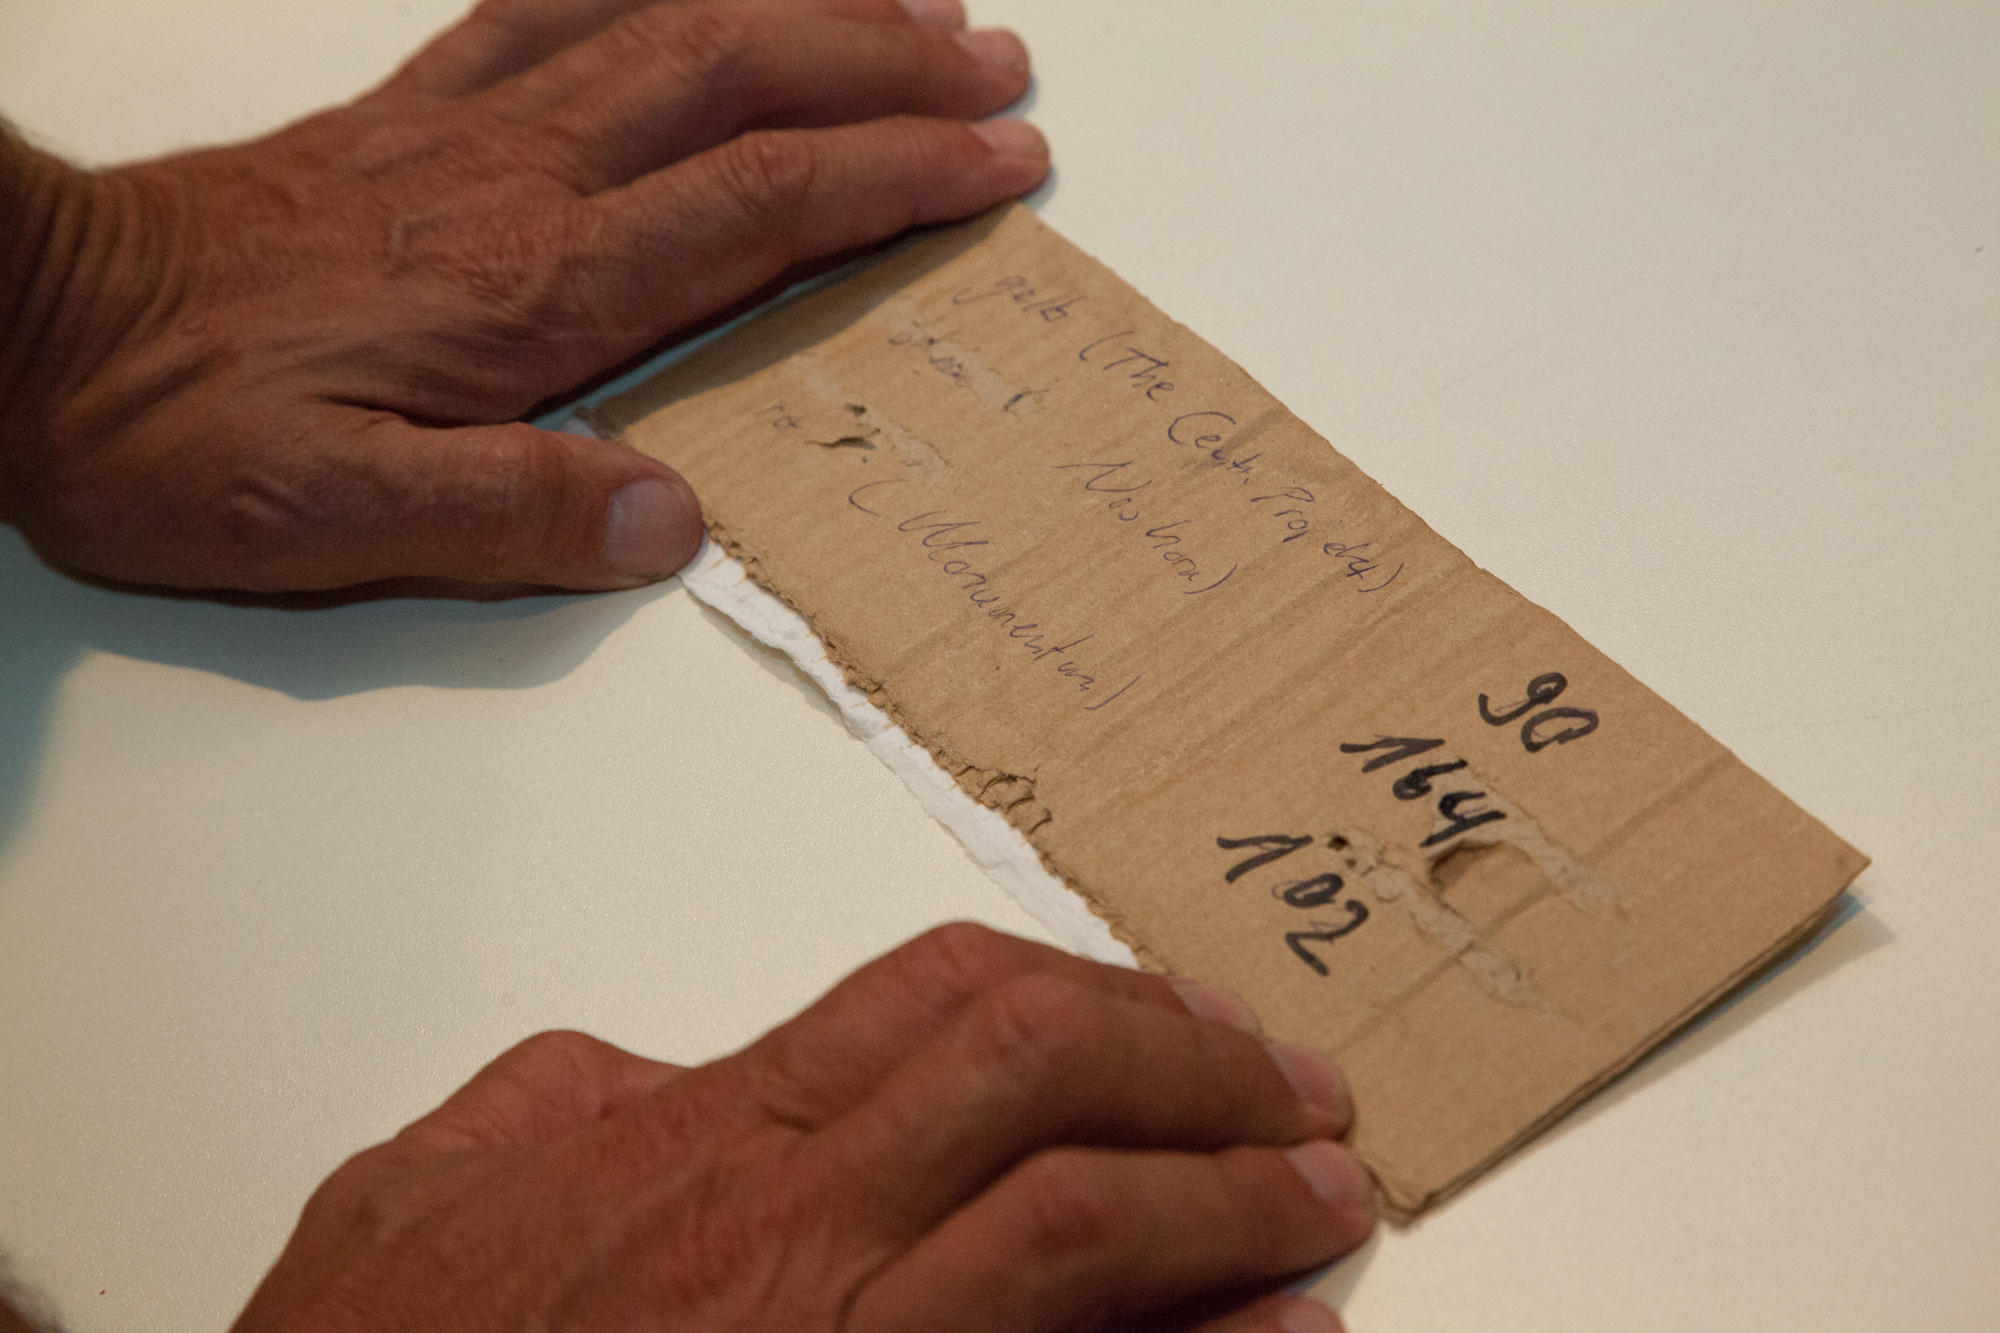 gelb (The Ceuti Projekt)
( Nashorn)
rot ( Monumentum)
90
164
102